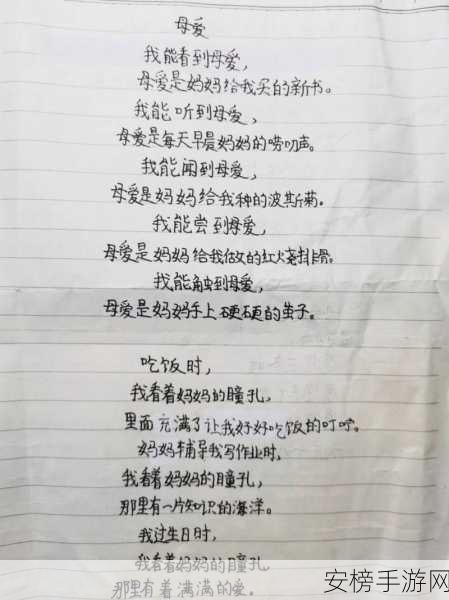 母爱
我能看到母爱，
母爱是妈妈给我买的新书。
我能听到母爱，
母爱是每天早晨妈妈的唠叨声。
我能闻到母爱，
母爱是妈妈给我种的波斯菊。
我能尝到母爱，
母爱是妈妈给我做的红火烧排骨。
我能触到母爱，
母爱是妈妈手上硬硬的茧子。
吃饭时，
我看着妈妈的瞳孔，
里面充满了让我好好吃饭的叮咛。
妈妈辅导我写作业时，
我看着妈妈的瞳孔，
那里有一片知识的海洋。
我过生日时，
我看着妈妈的瞳孔，
那里有着满满的爱。
安榜手游网